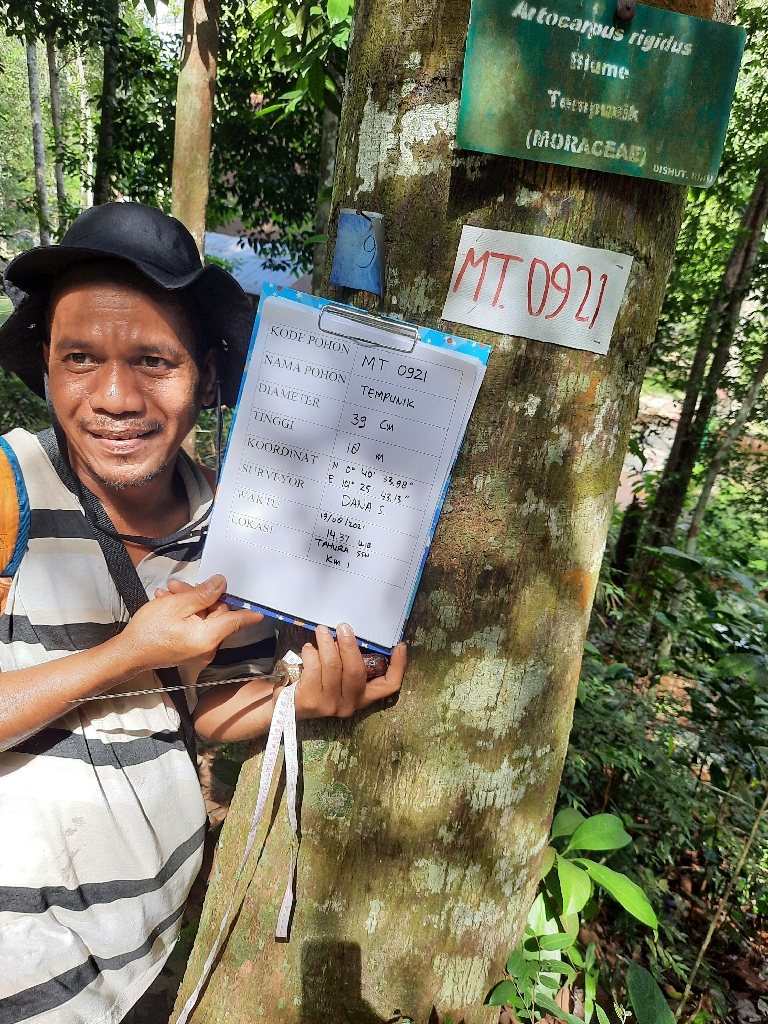 Artocarpus rigidus
Blume
Tempunik
(MORACEAE)
DISHUT.
9
MT. 0921
KODE POHON MT 0921
NAMA POHON TEMPUNIK
DIAMETER 39 cm
TINGGI 10 m
KOORDINAT N 0° 40' 33.98"
E 101° 25' 43.13"
SURVEYOR DANA S
WAKTU 19/06/2021
14.37 WIB
LOKASI TAHURA SSH
KM 1